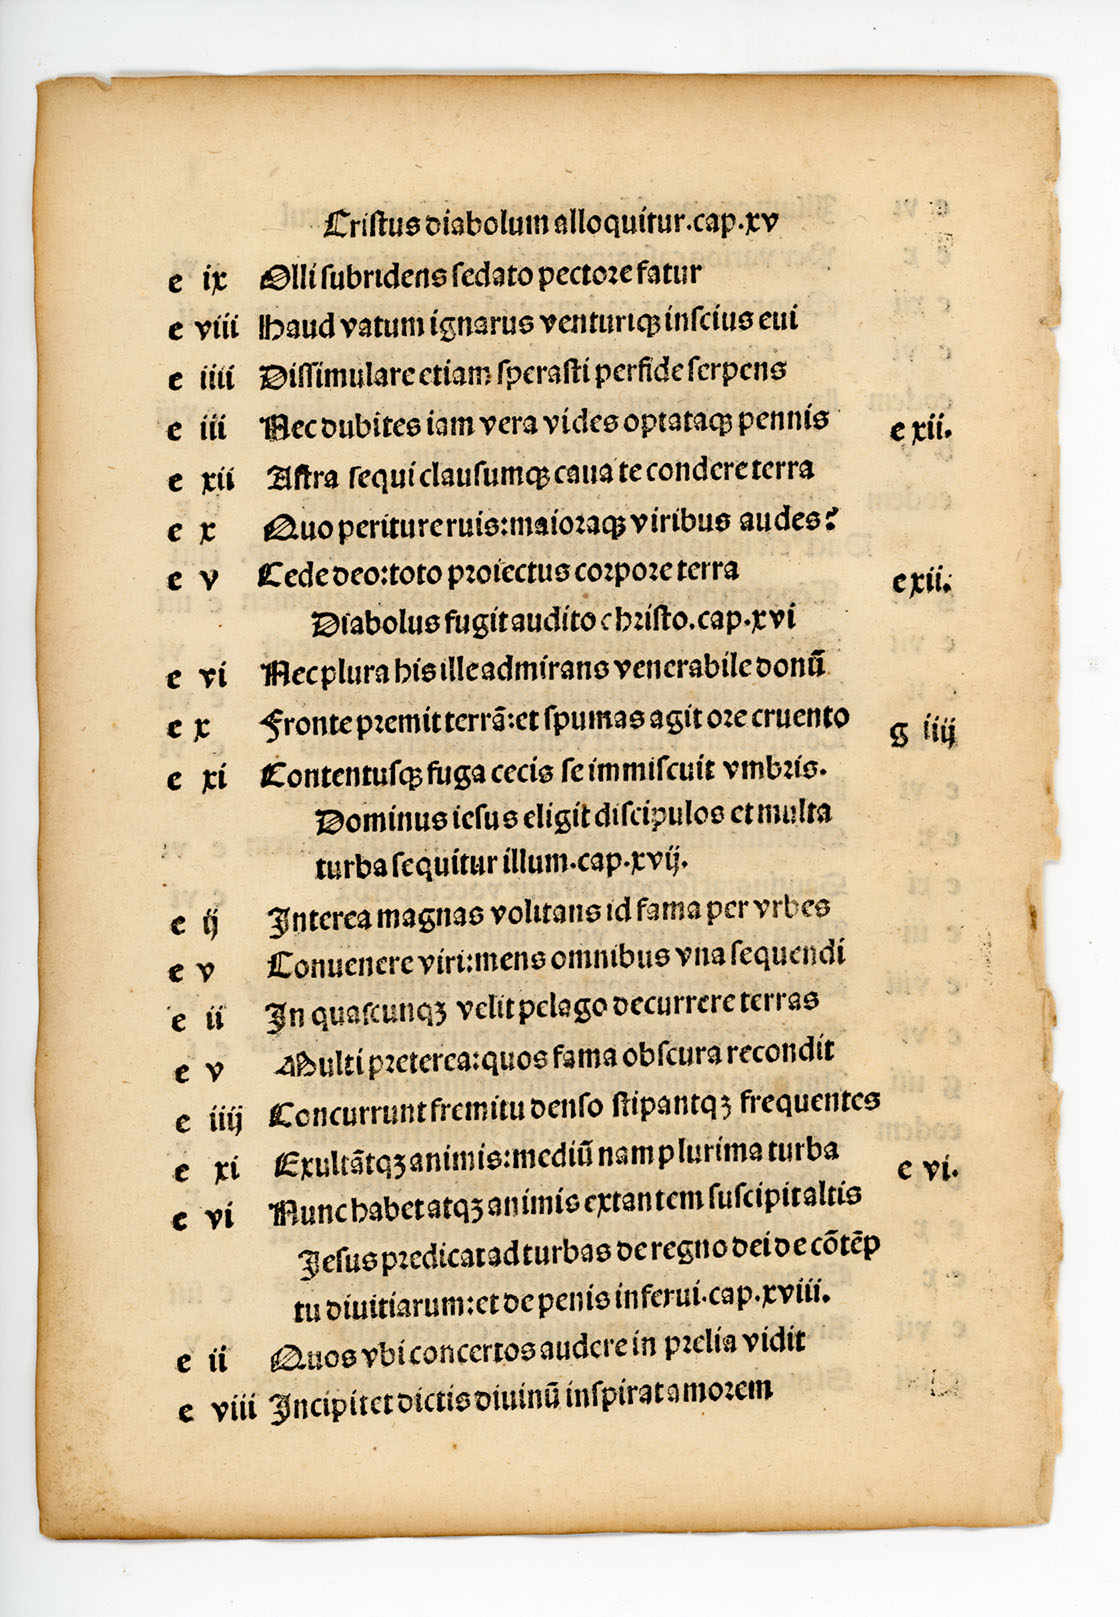 Cristus diabolum alloquitur.cap.xv
e ix Olli subridens sedato pectore fatur
e viii Haud vatum ignarus venturiqꝫ inscius eui
e iiii Dissimulare etiam sperasti perfide serpens
e iii Nec dubites iam vera vides optataqꝫ pennis e xii.
e xii Astra sequi clausumqꝫ caua te condere terra
e x Quo periture ruis:maioraqꝫ viribus audes?
e v Cede deo:toto proiectus corpore terra e xii.
Diabolus fugit audito christo.cap.xvi
e vi Nec plura his ille admirans venerabile donū
e x Fronte premit terrā:et spumas agit ore cruento g iiij
e xi Contentusqꝫ fuga cecis se immiscuit vmbris.
Dominus iesus eligit discipulos et multa
turba sequitur illum.cap.xvij.
e ij Interea magnas volitans id fama per vrbes
e v Conuenere viri:mens omnibus vna sequendi
e ii In quascunqꝫ velit pelago decurrere terras
e v Multi preterea:quos fama obscura recondit
e iiij Concurrunt fremitu denso stipantqꝫ frequentes
e xi Exultātqꝫ animis:mediū nam plurima turba e vi.
e vi Nunc habet atqꝫ animis extantem suscipit altis
Jesus predicat ad turbas de regno dei de cōtēp
tu diuitiarum:et de penis inferui.cap.xviii.
e ii Quos vbi concertos audere in prelia vidit
e viii Incipit et dictis diuinū inspirat amorem